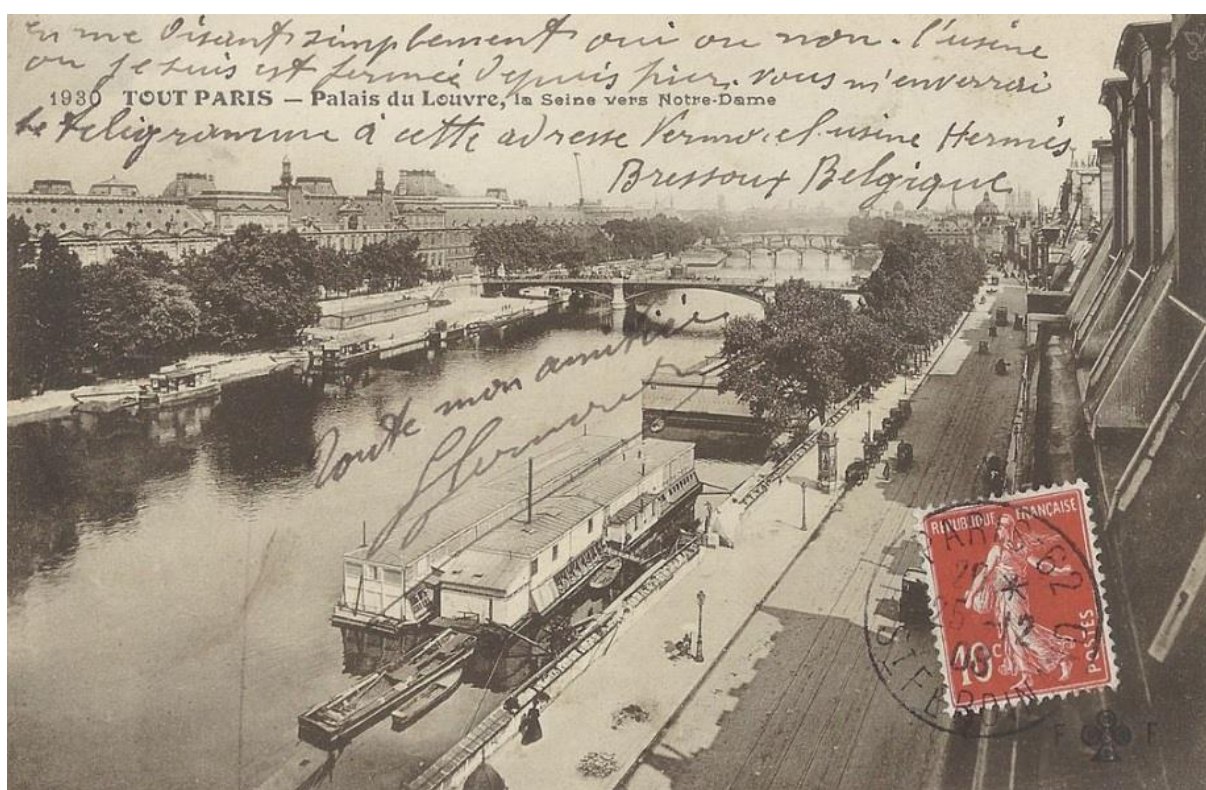 en me disant simplement oui ou non. l'usine
ou je suis est fermée depuis hier. vous m'enverrai
1930 TOUT PARIS – Palais du Louvre, la Seine vers Notre-Dame
le teligramme à cette adresse Vermo. el. usine Hermès
Bressoux Belgique
Toute mon amitiés
REPUBLIQUE FRANÇAISE
PARIS-62
10c
POSTES
ST FERDIN
F F